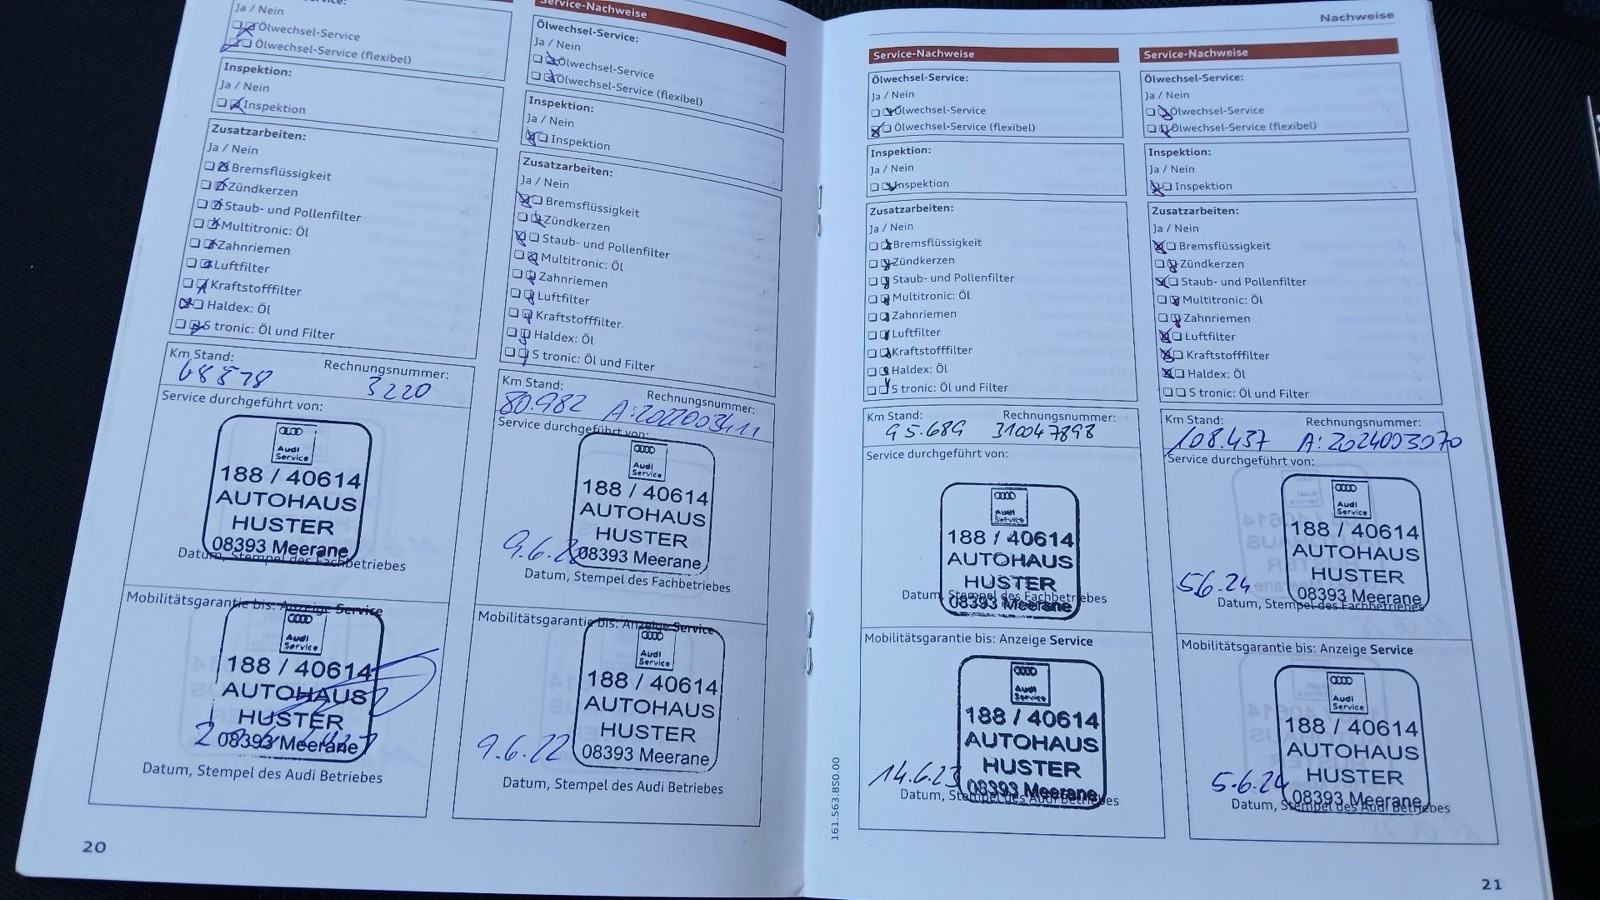 Ja / Nein
Ölwechsel-Service
Ölwechsel-Service (flexibel)
Inspektion:
Ja / Nein
Inspektion
Zusatzarbeiten:
Ja / Nein
Bremsflüssigkeit
Zündkerzen
Staub- und Pollenfilter
Multitronic: Öl
Zahnriemen
Luftfilter
Kraftstofffilter
Haldex: Öl
S tronic: Öl und Filter
Km Stand: Rechnungsnummer:
68578 3220
Service durchgeführt von:
Audi
Service
188 / 40614
AUTOHAUS
HUSTER
08393 Meerane
Datum, Stempel des Fachbetriebes
Mobilitätsgarantie bis: Anzeige Service
Audi
Service
188 / 40614
AUTOHAUS
HUSTER
08393 Meerane
Datum, Stempel des Audi Betriebes
20
Service-Nachweise
Ölwechsel-Service:
Ja / Nein
Ölwechsel-Service
Ölwechsel-Service (flexibel)
Inspektion:
Ja / Nein
Inspektion
Zusatzarbeiten:
Ja / Nein
Bremsflüssigkeit
Zündkerzen
Staub- und Pollenfilter
Multitronic: Öl
Zahnriemen
Luftfilter
Kraftstofffilter
Haldex: Öl
S tronic: Öl und Filter
Km Stand: Rechnungsnummer:
80.982 A:2022003411
Service durchgeführt von:
Audi
Service
188 / 40614
AUTOHAUS
HUSTER
9.6.22 08393 Meerane
Datum, Stempel des Fachbetriebes
Mobilitätsgarantie bis: Anzeige Service
Audi
Service
188 / 40614
AUTOHAUS
HUSTER
9.6.22 08393 Meerane
Datum, Stempel des Audi Betriebes
Nachweise
Service-Nachweise
Ölwechsel-Service:
Ja / Nein
Ölwechsel-Service
Ölwechsel-Service (flexibel)
Inspektion:
Ja / Nein
Inspektion
Zusatzarbeiten:
Ja / Nein
Bremsflüssigkeit
Zündkerzen
Staub- und Pollenfilter
Multitronic: Öl
Zahnriemen
Luftfilter
Kraftstofffilter
Haldex: Öl
S tronic: Öl und Filter
Km Stand: Rechnungsnummer:
95.689 310047898
Service durchgeführt von:
Audi
Service
188 / 40614
AUTOHAUS
HUSTER
08393 Meerane
Datum, Stempel des Fachbetriebes
Mobilitätsgarantie bis: Anzeige Service
Audi
Service
188 / 40614
AUTOHAUS
HUSTER
14.6.23 08393 Meerane
Datum, Stempel des Audi Betriebes
161.563.850.00
Service-Nachweise
Ölwechsel-Service:
Ja / Nein
Ölwechsel-Service
Ölwechsel-Service (flexibel)
Inspektion:
Ja / Nein
Inspektion
Zusatzarbeiten:
Ja / Nein
Bremsflüssigkeit
Zündkerzen
Staub- und Pollenfilter
Multitronic: Öl
Zahnriemen
Luftfilter
Kraftstofffilter
Haldex: Öl
S tronic: Öl und Filter
Km Stand: Rechnungsnummer:
108.437 A:2024003070
Service durchgeführt von:
Audi
Service
188 / 40614
AUTOHAUS
HUSTER
5.6.24 08393 Meerane
Datum, Stempel des Fachbetriebes
Mobilitätsgarantie bis: Anzeige Service
Audi
Service
188 / 40614
AUTOHAUS
HUSTER
5.6.24 08393 Meerane
Datum, Stempel des Audi Betriebes
21